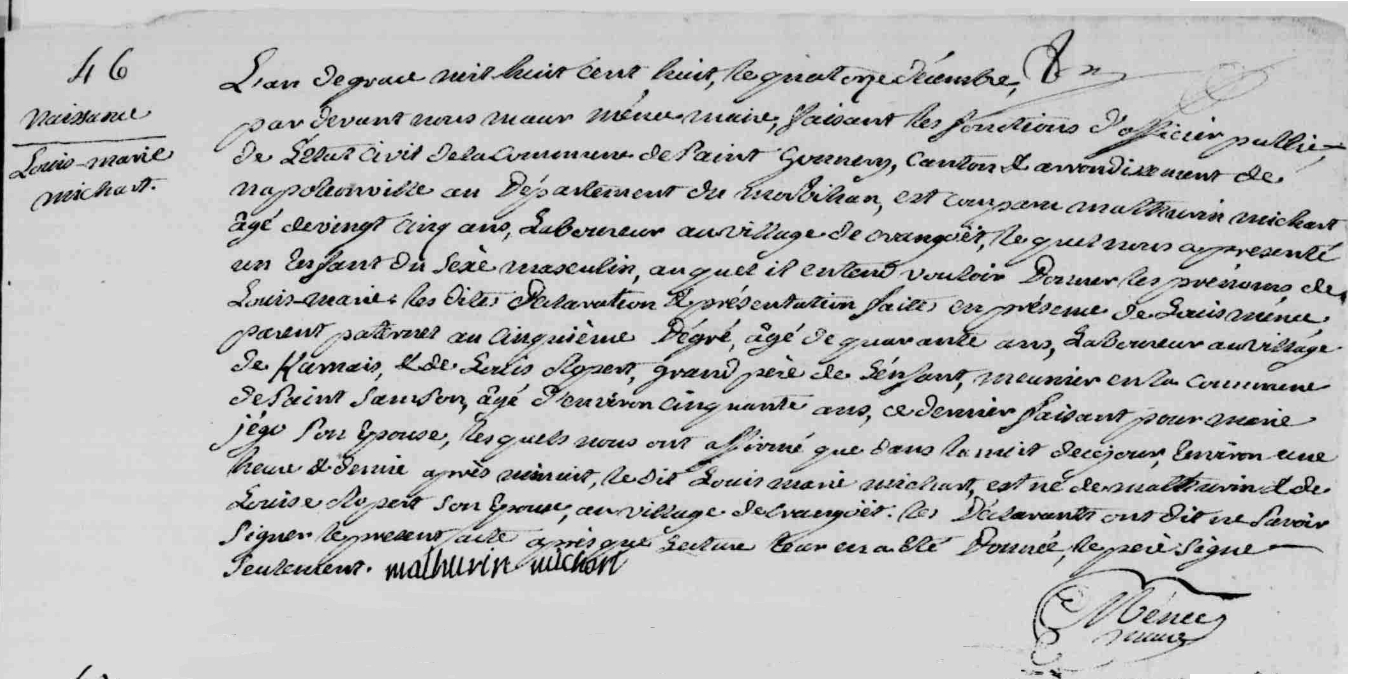 46
Naissance
Louis-marie
michart.
L'an de grace mil huit cent huit, le quatorze décembre,
par devant nous maur ménec maire, faisant les fonctions d'officier public
de L'état Civil de la Commune de Saint Gonnery, Canton & arrondissement de
napoléonville au Département du morbihan, est comparu mathurin michart
âgé de vingt cinq ans, Laboureur au village de cranguët, le quel nous a presenté
un Enfant du Sexe masculin, au quel il entend vouloir Donner les prénoms de
Louis-marie; les dites Déclaration & présentation faites en présence de Louis ménec
parent paternel au Cinquième Dégré, âgé de quarante ans, Laboureur au village
de Kamais, & de Louis Ropert, grand père de L'énfant, meunier en la commune
de Saint Samson, âgé d'environ cinquante ans, ce dernier faisant pour marie
jégo Son Epouse, les quels nous ont affirmé que dans la nuit de ce jour, Environ une
heure & demie après minuit, le dit Louis marie michart, est né de mathurin & de
Louise Ropert Son Epouse, au village de Cranguët. les Déclarants ont dit ne Savoir
Signer le present acte après que Lecture leur en a été Donnée, le père Signe
Seulement. mathurin michart
Ménec
maire